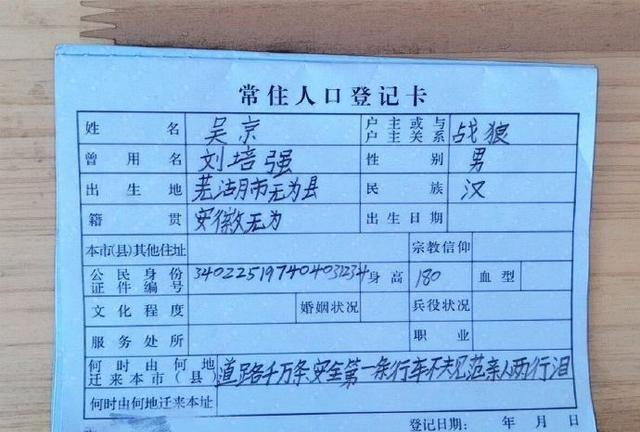 常住人口登记卡
姓名 吴京 户主或与户主关系 战狼
曾用名 刘培强 性别 男
出生地 芜湖市无为县 民族 汉
籍贯 安徽无为 出生日期
本市(县)其他住址 宗教信仰
公民身份证件编号 340225197404031234 身高 180 血型
文化程度 婚姻状况 兵役状况
服务处所 职业
何时由何地迁来本市(县) 道路千万条安全第一条行车不规范亲人两行泪
何时由何地迁来本址
登记日期: 年 月 日